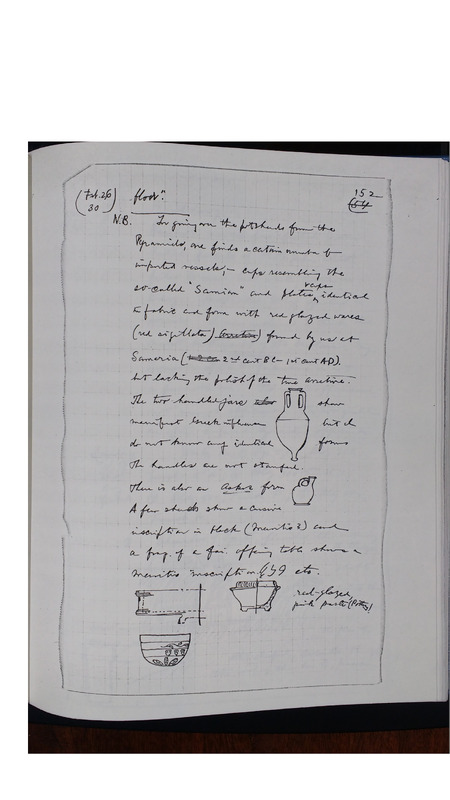 (Feb. 26) floor".
30
152
N.B. In going over the potsherds from the
Pyramids, one finds a certain number of
imported vessels, – cups resembling the
so-called "Samian" and plates, vases identical
in fabric and form with red glazed wares
(red sigillata) found by us at
Samaria ( 2nd cent BC – 1st cent AD).
but lacking the polish of the true arretine.
The two handled jars show
manifest Greek influence but I
do not know any identical forms
The handles are not stamped.
There is also an askos form
A few sherds show a cursive
inscription in black (Meroitic?) and
a frag. of a fai. offering table shows a
Meroitic inscription etc.
red-glazed
pink paste